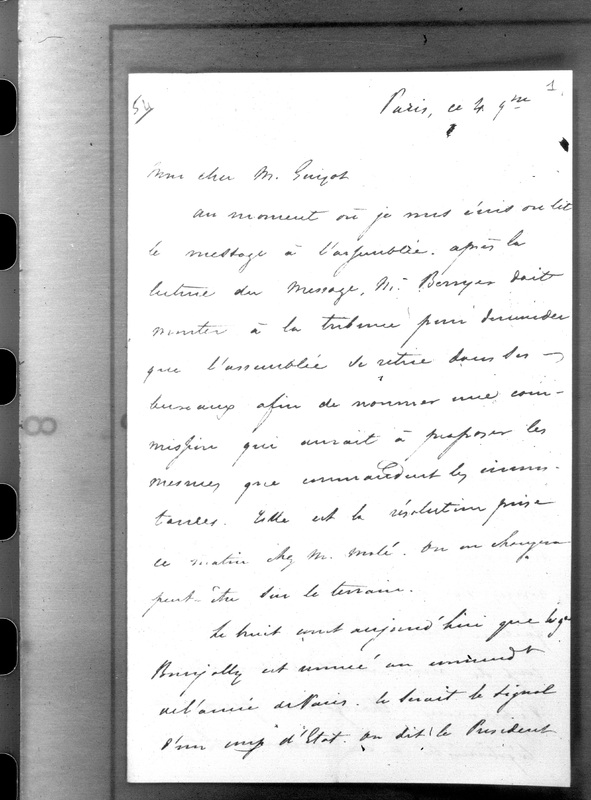 54
1
Paris, ce 4 9bre
Mon cher M. Guizot
au moment où je vous écris on lit
le message à l'assemblée. après la
lecture du message, M. Berryer doit
monter à la tribune pour demander
que l'assemblée se retire dans ses
bureaux afin de nommer une com-
mission qui aurait à proposer les
mesures que commandent les circons-
tances. Telle est la résolution prise
ce matin chez M. Molé. On en changera
peut-être sur le terrain.
Le bruit court aujourd'hui que le gal
Bourjolly est nommé au
de l'armée de Paris. Ce serait le signal
d'un coup d'Etat. On dit le Président
8